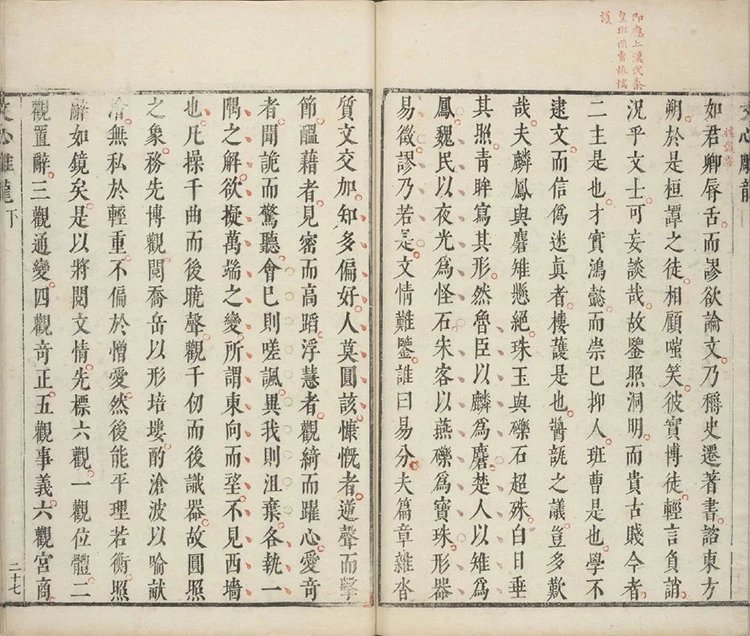 即應上漢武秦
皇班固曹植樓
護
文心雕龍
如君卿脣舌而謬欲論文乃稱史遷著書諮東方
朔於是桓譚之徒相顧嗤笑彼實博徒輕言負誚
況乎文士可妄談哉故鑒照洞明而貴古賤今者
二主是也才實鴻懿而崇已抑人班曹是也學不
逮文而信爲迷真者樓護是也醬瓿之議豈多歎
哉夫麟鳳與麏雉懸絕珠玉與礫石超殊白日垂
其照青眸寫其形然魯臣以麟爲麏楚人以雉爲
鳳魏民以夜光爲怪石宋客以燕礫爲寶珠形器
易徵謬乃若是文情難鑒誰曰易分夫篇章雜沓
質文交加知多偏好人莫圓該慷慨者逆聲而擊
節醞藉者見密而高蹈浮慧者觀綺而躍心愛奇
者聞詭而驚聽會已則嗟諷異我則沮棄各執一
隅之解欲擬萬端之變所謂東向而望不見西墻
也凡操千曲而後曉聲觀千仞而後識器故圓照
之象務先博觀閱喬岳以形培塿酌滄波以喻畎
澮無私於輕重不偏於憎愛然後能平理若衡照
辭如鏡矣是以將閱文情先標六觀一觀位體二
觀置辭三觀通變四觀奇正五觀事義六觀宮商
文心雕龍下
二十七